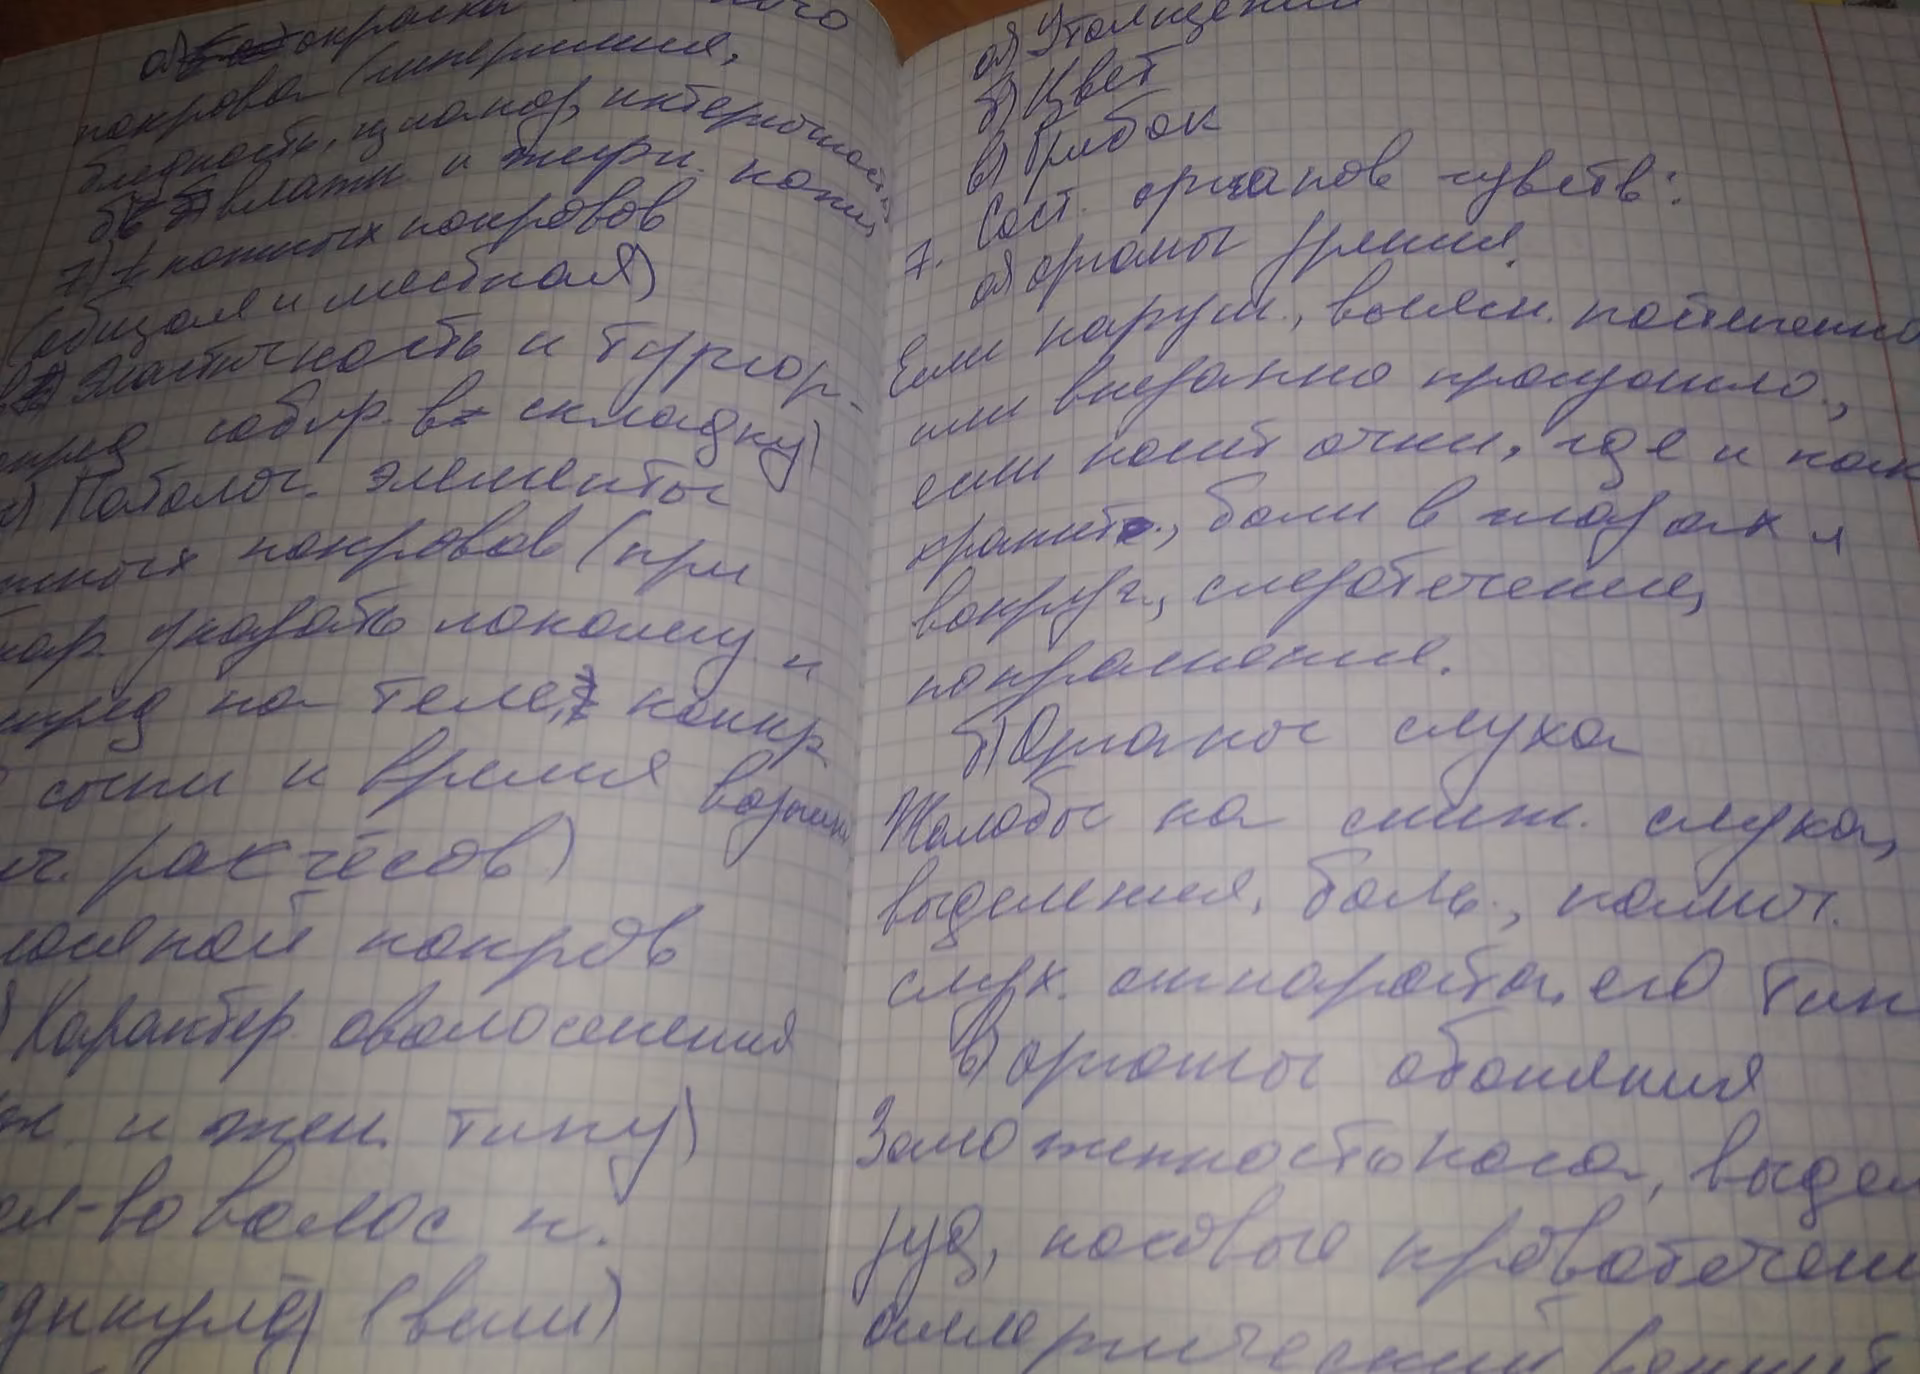 а) окраска
покрова (гиперемия,
бледность, цианоз, иктеричность
б) влажн. и жирн. кожи,
7) t кожных покровов
(общая и местная)
Эластичность и тургор-
собир. в складку)
Патолог. элементы
покровов (при
указать локализ и
на теле, конкр
сыпи и время возник
расчёсов)
покров
Характер оволосенения
и жен. типу)
л-во волос н.
дикулёз (вши)
а) Утолщения
б) Цвет
в) Грибок
7. Сост. органов чувств:
а) органы зрения.
Если наруш., выясн. постепенно
или внезапно произошло.,
если носит очки, где и как
хранит., боли в глазах и
вокруг., слезотечение,
покраснения.
б) Органы слуха
Жалобы на сниж. слуха,
выделения, боль., налич.
слух. аппарата, его тип
в) органы обоняния
Заложенность носа, выдел
зуд, носовые кровотечен
аллергический